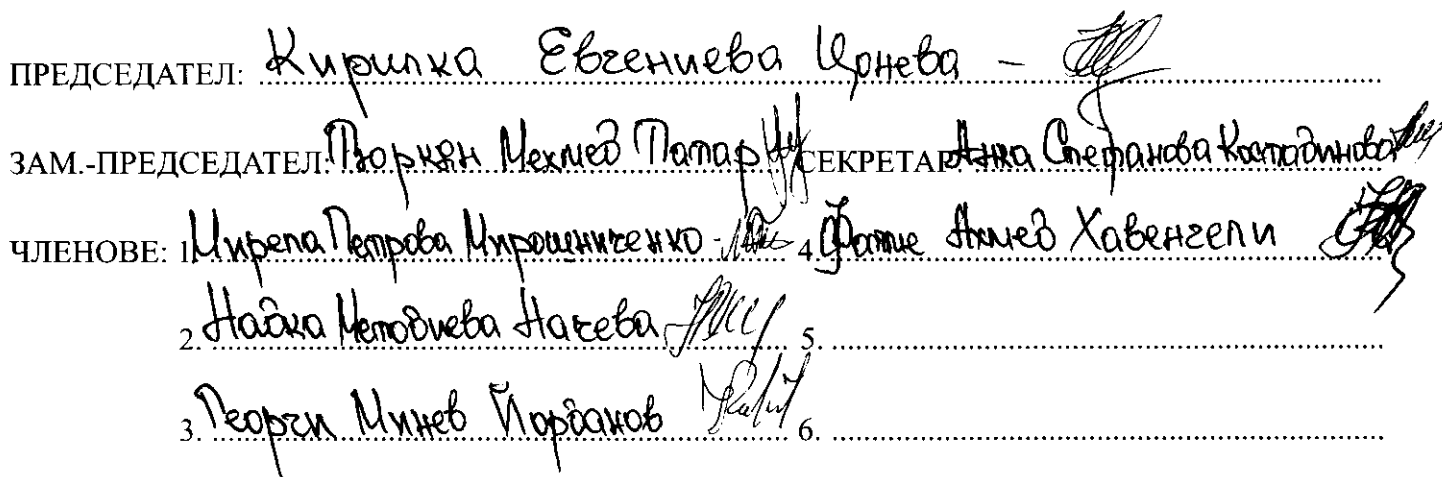 ПРЕДСЕДАТЕЛ: Кирилка Евгениева Цонева -
ЗАМ.-ПРЕДСЕДАТЕЛ: Тюркян Мехмед Татар СЕКРЕТАР: Анка Стефанова Костадинова
ЧЛЕНОВЕ: 1. Мирела Петрова Мирошниченко - 4. Фатме Ахмед Хавенгели
2. Найка Методиева Начева 5.
3. Георги Минев Йорданов 6.